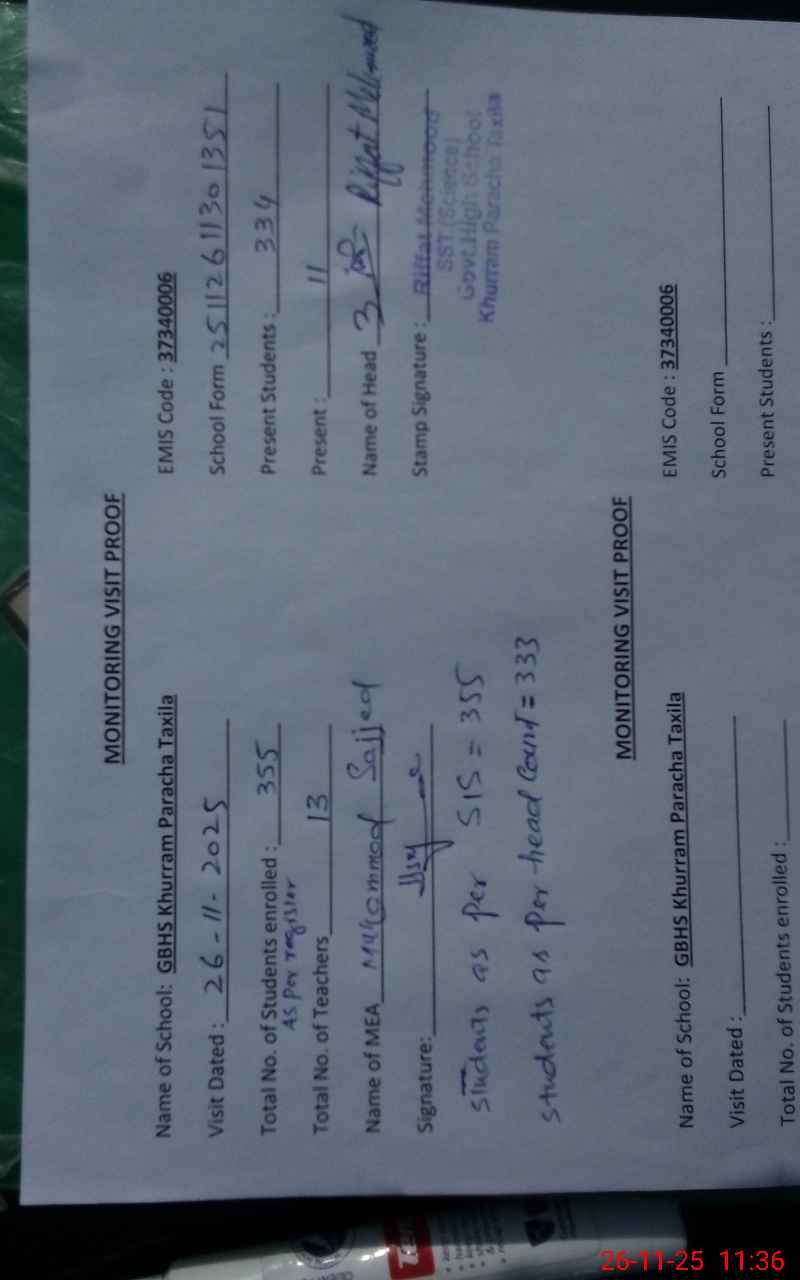 MONITORING VISIT PROOF
Name of School: GBHS Khurram Paracha Taxila EMIS Code : 37340006
Visit Dated : 26-11-2025 School Form 25112611301351
Total No. of Students enrolled : 355 Present Students : 334
As per register
Total No. of Teachers 13 Present : 11
Name of MEA Muhammad Sajjed Name of Head Riffat Mehmood
Signature: Stamp Signature : Riffat Mehmood
SST (Science)
Govt.High School
Khurram Paracha Taxila
Students as per SIS = 355
Students as per head Count = 333
MONITORING VISIT PROOF
Name of School: GBHS Khurram Paracha Taxila EMIS Code : 37340006
Visit Dated : School Form
Total No. of Students enrolled : Present Students :
26-11-25 11:36